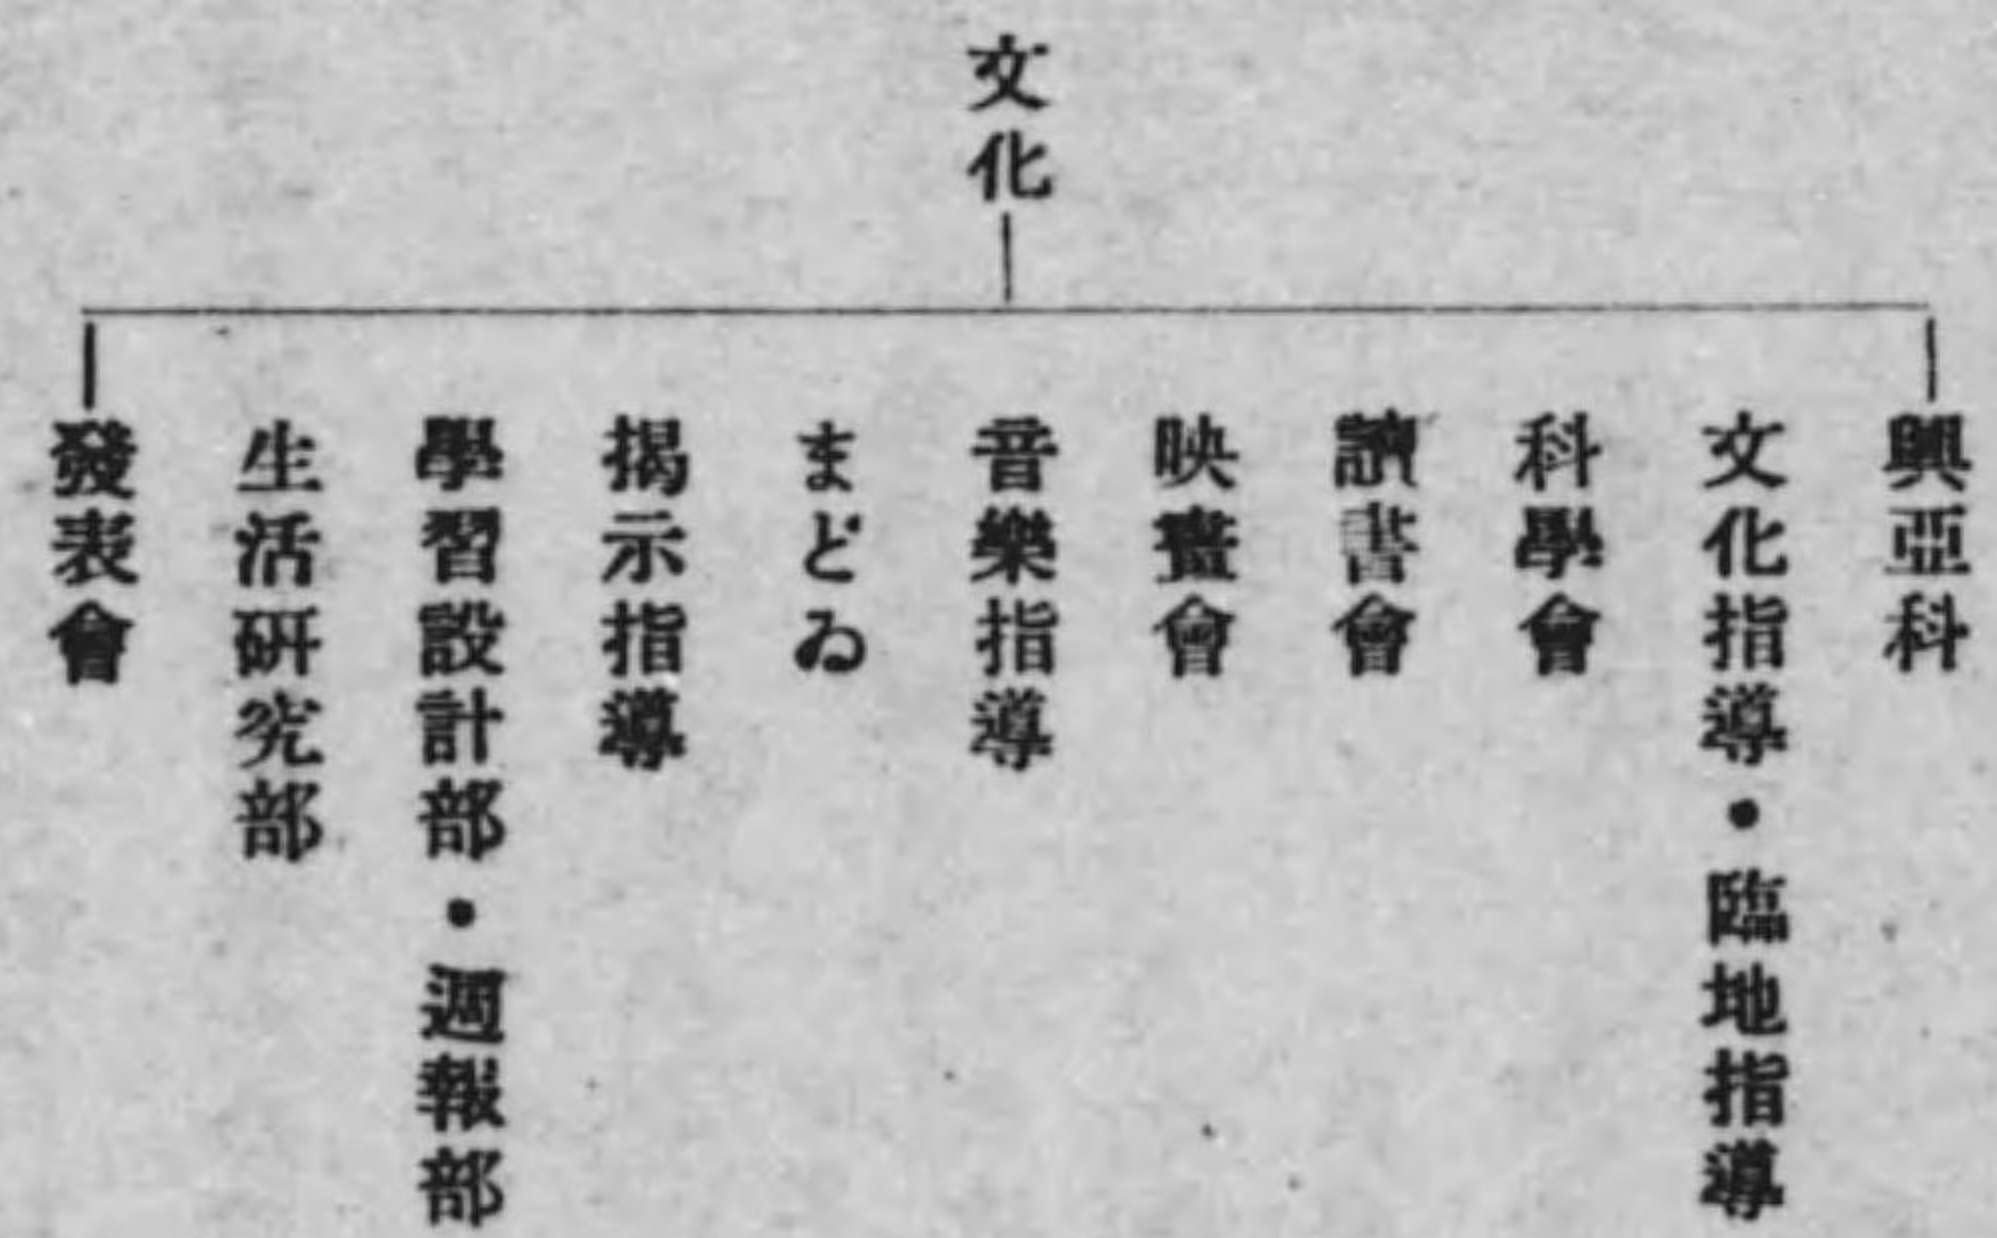 文化
興亞科
文化指導・臨地指導
科學會
讀書會
映畫會
音樂指導
まどゐ
揭示指導
學習設計部・週報部
生活硏究部
發表會